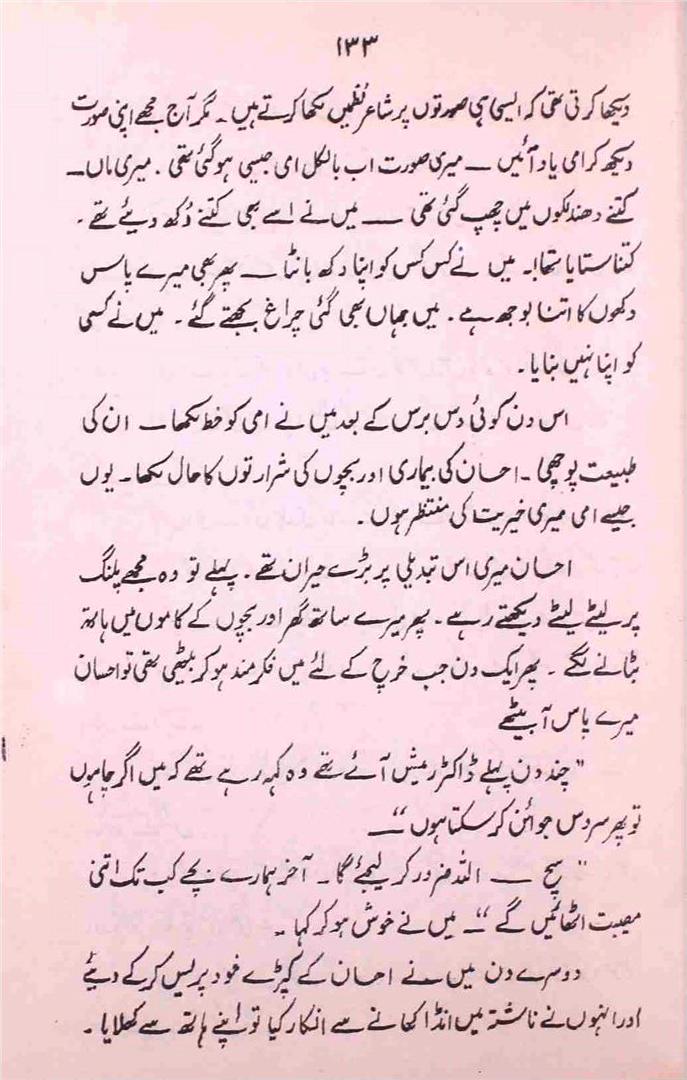 ۱۳۳
دیکھا کرتی تھی کہ ایسی ہی صورتوں پر شاعر نظمیں لکھا کرتے ہیں ۔ مگر آج مجھے اپنی صورت
دیکھ کر امی یاد آئیں ــ میری صورت اب بالکل امی جیسی ہو گئی تھی . میری ماں ــ
کتنے دھندلکوں میں چھپ گئی تھی ــ میں نے اسے بھی کتنے دُکھ دیئے تھے ۔
کتنا ستایا تھا! ۔ میں نے کس کس کو اپنا دکھ بانٹا ــ پھر بھی میرے پاس
دکھوں کا اتنا بوجھ ہے ۔ میں جہاں بھی گئی چراغ بجھتے گئے ۔ میں نے کسی
کو اپنا نہیں بنایا ۔
اس دن کوئی دس برس کے بعد میں نے امی کو خط لکھا ــ ان کی
طبیعت پوچھی ۔ احسان کی بیماری اور بچوں کی شرارتوں کا حال لکھا ۔ یوں
جیسے امی میری خیریت کی منتظر ہوں ۔
احسان میری اس تبدیلی پر بڑے حیران تھے ۔ پہلے تو وہ مجھے پلنگ
پر لیٹے لیٹے دیکھتے رہے ۔ پھر میرے ساتھ گھر اور بچوں کے کاموں میں ہاتھ
بٹانے لگے ۔ پھر ایک دن جب خرچ کے لئے میں فکر مند ہو کر بیٹھی تھی تو احسان
میرے پاس آ بیٹھے
" چند دن پہلے ڈاکٹر رمیش آئے تھے وہ کہہ رہے تھے کہ میں اگر چاہوں
تو پھر سروس جوائن کر سکتا ہوں " ــ
" سچ ــ اللہ ضرور کر لیجئے گا ۔ آخر ہمارے بچے کب تک اتنی
مصیبت اٹھائیں گے " ــ میں نے خوش ہو کر کہا ۔
دوسرے دن میں نے احسان کے کپڑے خود پریس کر کے دیئے
اور انہوں نے ناشتہ میں انڈا کھانے سے انکار کیا تو اپنے ہاتھ سے کھلایا ۔